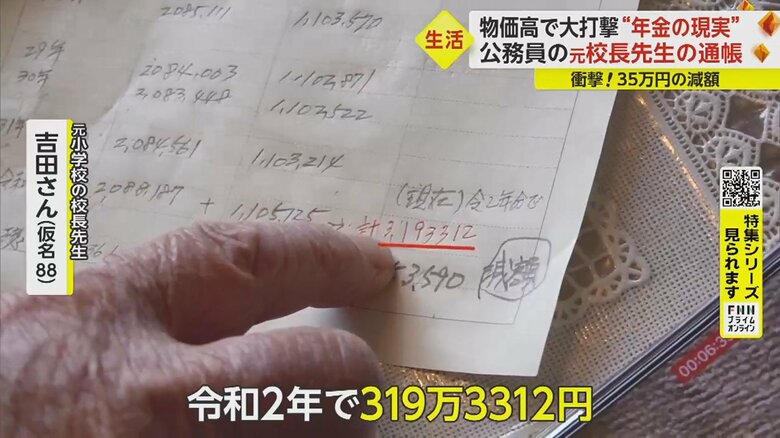 生活
物価高で大打撃“年金の現実”
公務員の元校長先生の通帳
衝撃！35万円の減額
元小学校の校長先生
吉田さん（仮名88）
特集シリーズ
見られます
FNN
プライム
オンライン
2085,111 1,103,570
29年
30年 2084,003 1,102,871
2,083,448 1,102,522
2,084,561 1,103,214
(現在) 令2年分で
2088,187 + 1,105,125 → 計3,193312
3,590 減額
00:06:3
令和2年で319万3312円